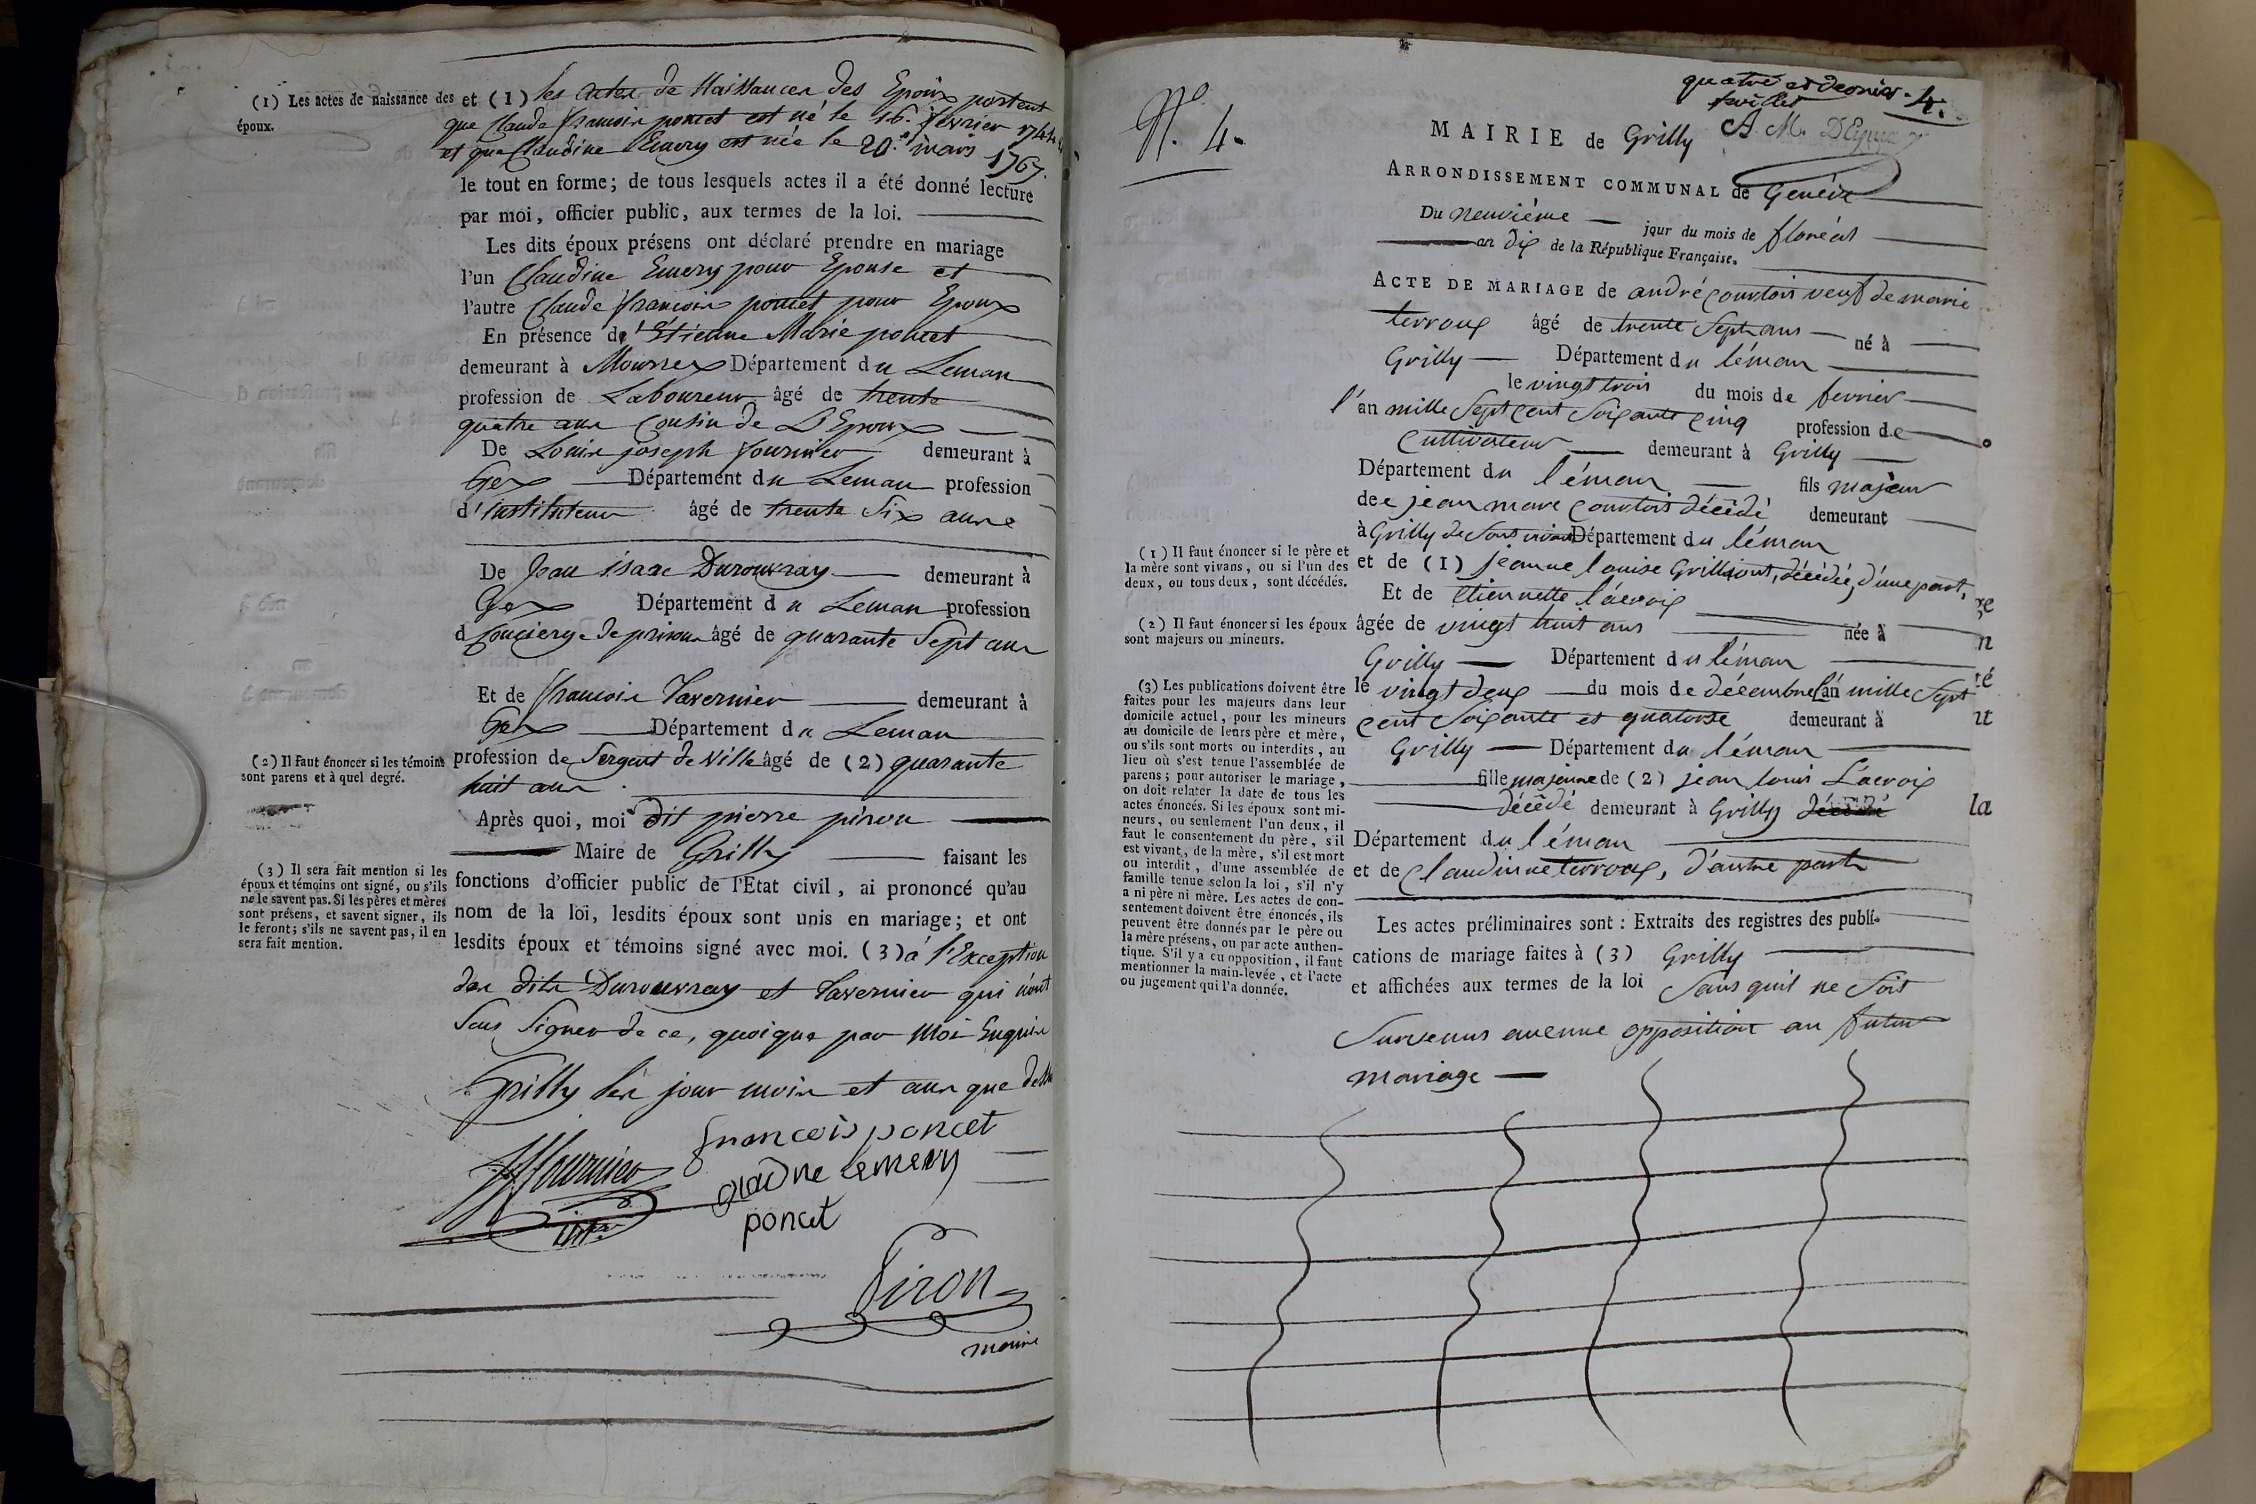 (1) Les actes de naissance des
époux.
et (1) les actes de Naissances des Epoux portent
que Claude françois poncet est né le 16.e fevrier 1744
et que Claudine Emery est née le 20.e mars 1767.
le tout en forme; de tous lesquels actes il a été donné lecture
par moi, officier public, aux termes de la loi.
Les dits époux présens ont déclaré prendre en mariage
l'un Claudine Emery pour Epouse et
l'autre Claude françois poncet pour Epoux
En présence de Etienne Marie poncet
demeurant à Mourex Département du Leman
profession de Laboureur âgé de trente
quatre ans Cousin de L'Epoux
De Louis joseph fournier demeurant à
Gex Département du Leman profession
d'instituteur âgé de trente Six ans
De Jean isaac Durouvray demeurant à
Gex Département du Leman profession
d Concierge de prisons âgé de quarante Sept ans
Et de françois Tavernier demeurant à
Gex Département du Leman
(2) Il Faut énoncer si les témoins
sont parens et à quel degré.
profession de Sergent de Ville âgé de (2) quarante
huit ans
Après quoi, moi dit pierre piron
Maire de Grilly faisant les
(3) Il sera fait mention si les
époux et témoins ont signé, ou s'ils
ne le savent pas. Si les pères et mères
sont présens, et savent signer, ils
le feront; s'ils ne savent pas, il en
sera fait mention.
fonctions d'officier public de l'Etat civil, ai prononcé qu'au
nom de la loi, lesdits époux sont unis en mariage; et ont
lesdits époux et témoins signé avec moi. (3) à l'Exception
des dits Durouvray et Tavernier qui n'ont
Sçus Signer de ce, quoique par Moi Enquis
Grilly les jour mois et ans que dessus
françois poncet
JJfournier
emery
poncet
Piron
maire
quatre et dernier 4.
feuillet
N.o 4.
MAIRIE de Grilly
A. M.
ARRONDISSEMENT COMMUNAL de Genève
Du neuvième jour du mois de floréal
an dix de la République Française.
ACTE DE MARIAGE de andré Courtois veuf de marie
terroux âgé de trente Sept ans né à
Grilly Département du léman
le vingt trois du mois de fevrier
l'an mille Sept Cent Soixante Cinq profession de
Cultivateur demeurant à Grilly
Département du léman fils majeur
de jean marc Courtois décédé demeurant
à Grilly de Son vivant Département du léman
(1) Il faut énoncer si le père et
la mère sont vivans, ou si l'un des
deux, ou tous deux, sont décédés.
et de (1) jeanne louise Grilliont, décédée, d'une part,
Et de Etiennette lácroix
(2) Il faut énoncer si les époux
sont majeurs ou mineurs.
âgée de vingt huit ans née à
Grilly Département du léman
(3) Les publications doivent être
faites pour les majeurs dans leur
domicile actuel, pour les mineurs
au domicile de leurs père et mère,
ou s'ils sont morts ou interdits, au
lieu où s'est tenue l'assemblée de
parens; pour autoriser le mariage,
on doit relater la date de tous les
actes énoncés. Si les époux sont mi-
neurs, ou seulement l'un deux, il
faut le consentement du père, s'il
est vivant, de la mère, s'il est mort
ou interdit, d'une assemblée de
famille tenue selon la loi, s'il n'y
a ni père ni mère. Les actes de con-
sentement doivent être énoncés, ils
peuvent être donnés par le père ou
la mère présens, ou par acte authen-
tique. S'il y a eu opposition, il faut
mentionner la main-levée, et l'acte
ou jugement qui l'a donnée.
le vingt deux du mois de décembre l'an mille Sept
Cent Soixante et quatorze demeurant à
Grilly Département du léman
fille majeure de (2) jean louis Lacroix
décédé demeurant à Grilly décédé
Département du léman
et de Claudinne terroux, d'autre part
Les actes préliminaires sont : Extraits des registres des publi-
cations de mariage faites à (3) Grilly
et affichées aux termes de la loi Sans quil ne Soit
Survenus aucune opposition au futur
mariage
la